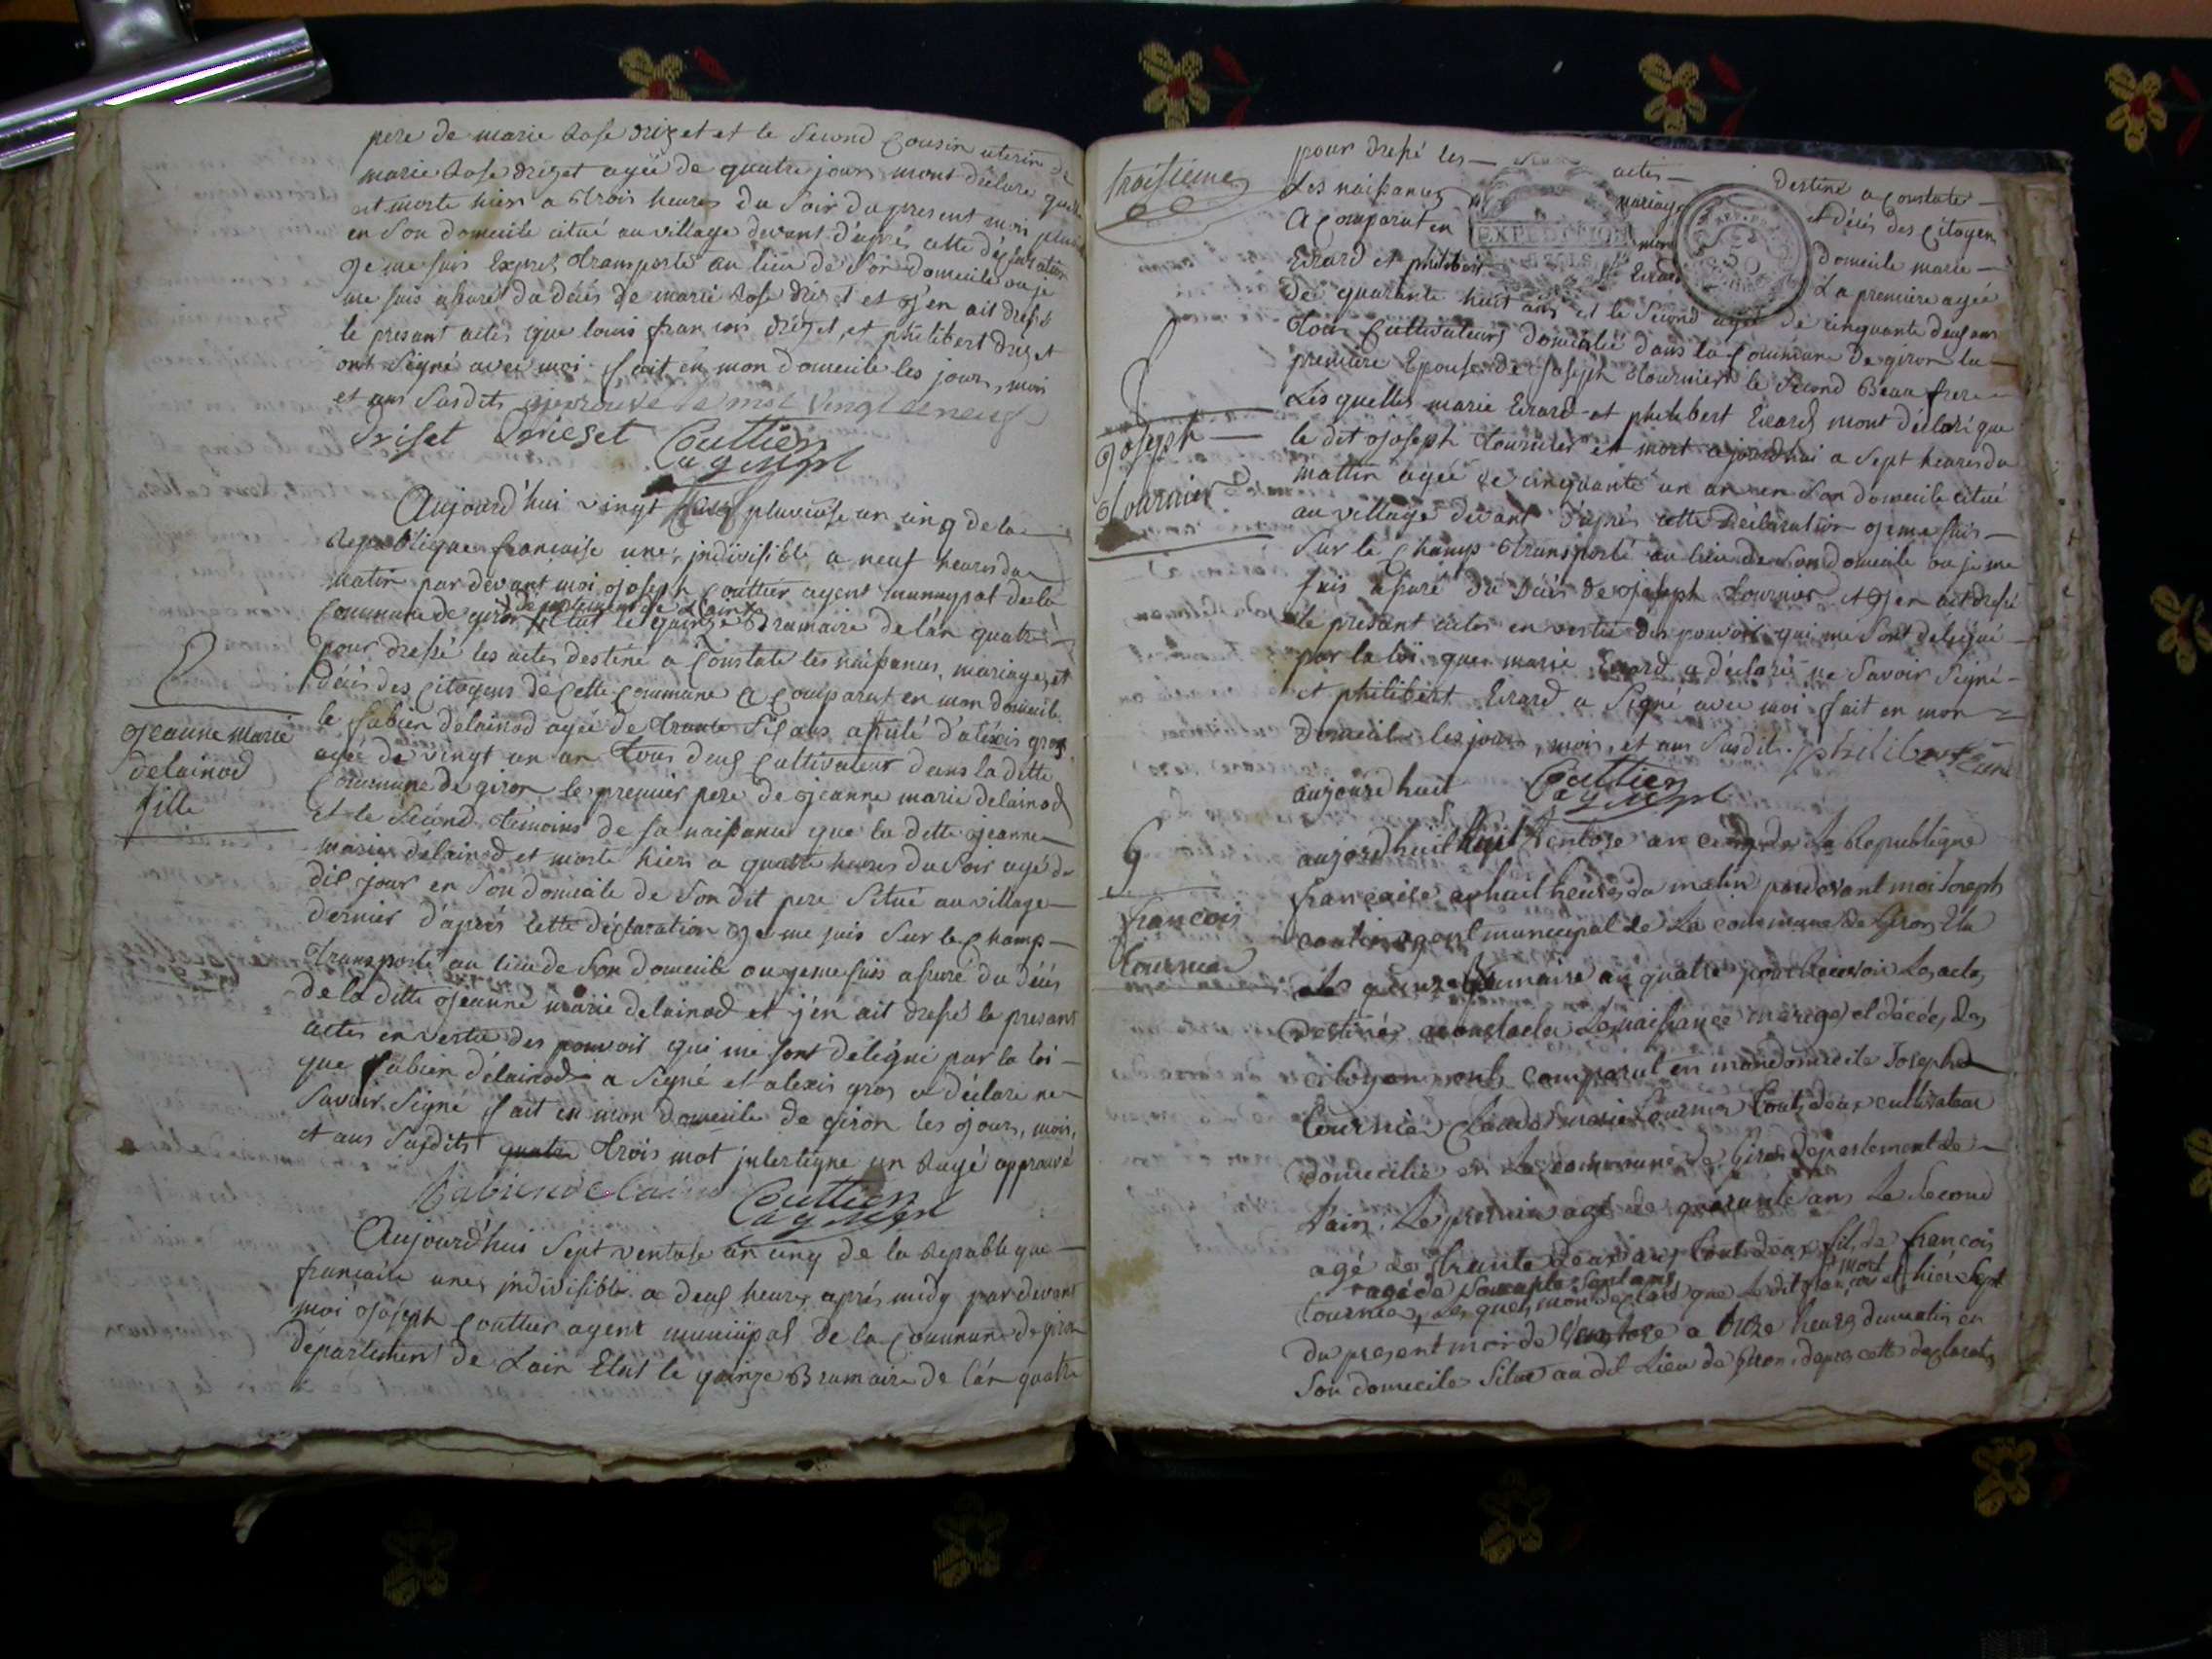 pere de marie Rose drizet et le Second Cousin uterin de
marie Rose drizet agée de quatre jours mont déclaré quelle
est morte hier a trois heures du Soir du present mois
en Son domicile citué au village devant d'après cette déclaration
je me suis Exprès transporté au lieu de Son domicile ou je
me suis assuré du décès de marie Rose drizet et j'en ait dressé
le presant actes que louis françois drizet, et philibert drizet
ont Signé avec moi fait en mon domicile les jours, mois
et ans Susdits approuve le mot vingt et neuf
Driset Drieset Couttier
ag mpl
Aujourd'hui vingt neuf pluviose an cinq de la
Republique francaise une, indivisible a neuf heures du
matin par devant moi joseph Couttier agent municipal de la
departement de Lain
Commune de giron Elut le quinze Brumaire de lan quatre
pour dressé les actes destiné a Constaté les naissances, mariages, et
décès des Citoyens de Cette Commune a Comparut en mon domicile
le fabien delainod agée de trante Six ans assité d'aléxis gros
agée de vingt un an tous deux Cultivateur dans la ditte
Commune de giron le premier pere de jeanne marie delainod
et le Second temoins de sa naissance que la ditte jeanne
marie delainod et morte hiers a quatre heures du Soir agé de
dix jour en Son domicile de Son dit pere Situé au village
dernier d'après cette déclaration je me suis Sur le Champ
transporté au lieu de Son domicile ou je me suis assuré du décès
de la ditte jeanne marie delainod et j'en ait dressé le presant
actes en vertu des pouvoir qui me sont délégué par la loi
que fabien délainod a Signé et alexis gros a déclaré ne
Savoir Signé fait en mon domicile de giron les jours, mois,
et ans Susdits quatre trois mot interligne un Rayé approuvé
fabien delainod Couttier
ag mpl
Aujourd'hui Sept ventose an cinq de la Republeque
francaise une, indivisible a deux heures après midy par devant
moi joseph Couttier agent municipal de la Commune de giron
département de Lain Elut le quinze Brumaire de lan quatre
2
jeanne marie
delainod
fille
troisieme
pour dressé les actes destiné a Constaté
Les naissances mariage et décès des Citoyens
A Comparut en mon domicile marie
Evrard et philibert Evrard La premiere agée
de quarante huit ans et le Second agée de cinquante deux ans
tous Cultivateurs domicilié dans la Commune de giron la
premiere Epouse de joseph tournier le Second Beau frere
Lesquelles marie Evrard et philibert Evrard mont déclaré que
le dit joseph tournier et mort ajourdhui a Sept heures du
mattin agée de cinquante un an en Son domicile citué
au village devant d'après cette Déclaration je me suis
Sur le Champ transporté au lieu de Son domicile ou je me
suis assuré du Décès de joseph tournier et j'en ait dressé
le presant actes en vertu des pouvoir qui me Sont delegué
par la loi que marie Evrard a déclaré ne Savoir Signé
et philibert Evrard a Signé avec moi fait en mon
Domicile les jours, mois, et ans Susdits philibert
aujourdhuit Couttier
ag mpl
joseph
tournier
aujordhuit huit Ventose an cinq de La Republique
francaise a huit heures du matin pardevant moi Joseph
coutier agent municipal de La commune de Giron Elu
le quinze brumaire an quatre pour Recevoir Les actes
destinés a constacter Les naissance mariage et décédes des
citoyen ont comparut en mon domicile Joseph
tournier Claude marie tournier tout deux cultivateur
domicilié en La commune de Giron departement de
Lain, Le premier agé de quarante ans Le Second
agé de trante deux ans tout deux fils de francois
agé de Soixante Sept ans mort
tournier, Lesquels mon declaré que Le dit francois et hier Sept
du present moi de Ventose a onze heures du matin en
Son domicile Situé au dit Lieu de Giron, dapres cette declaration
francois
tournier